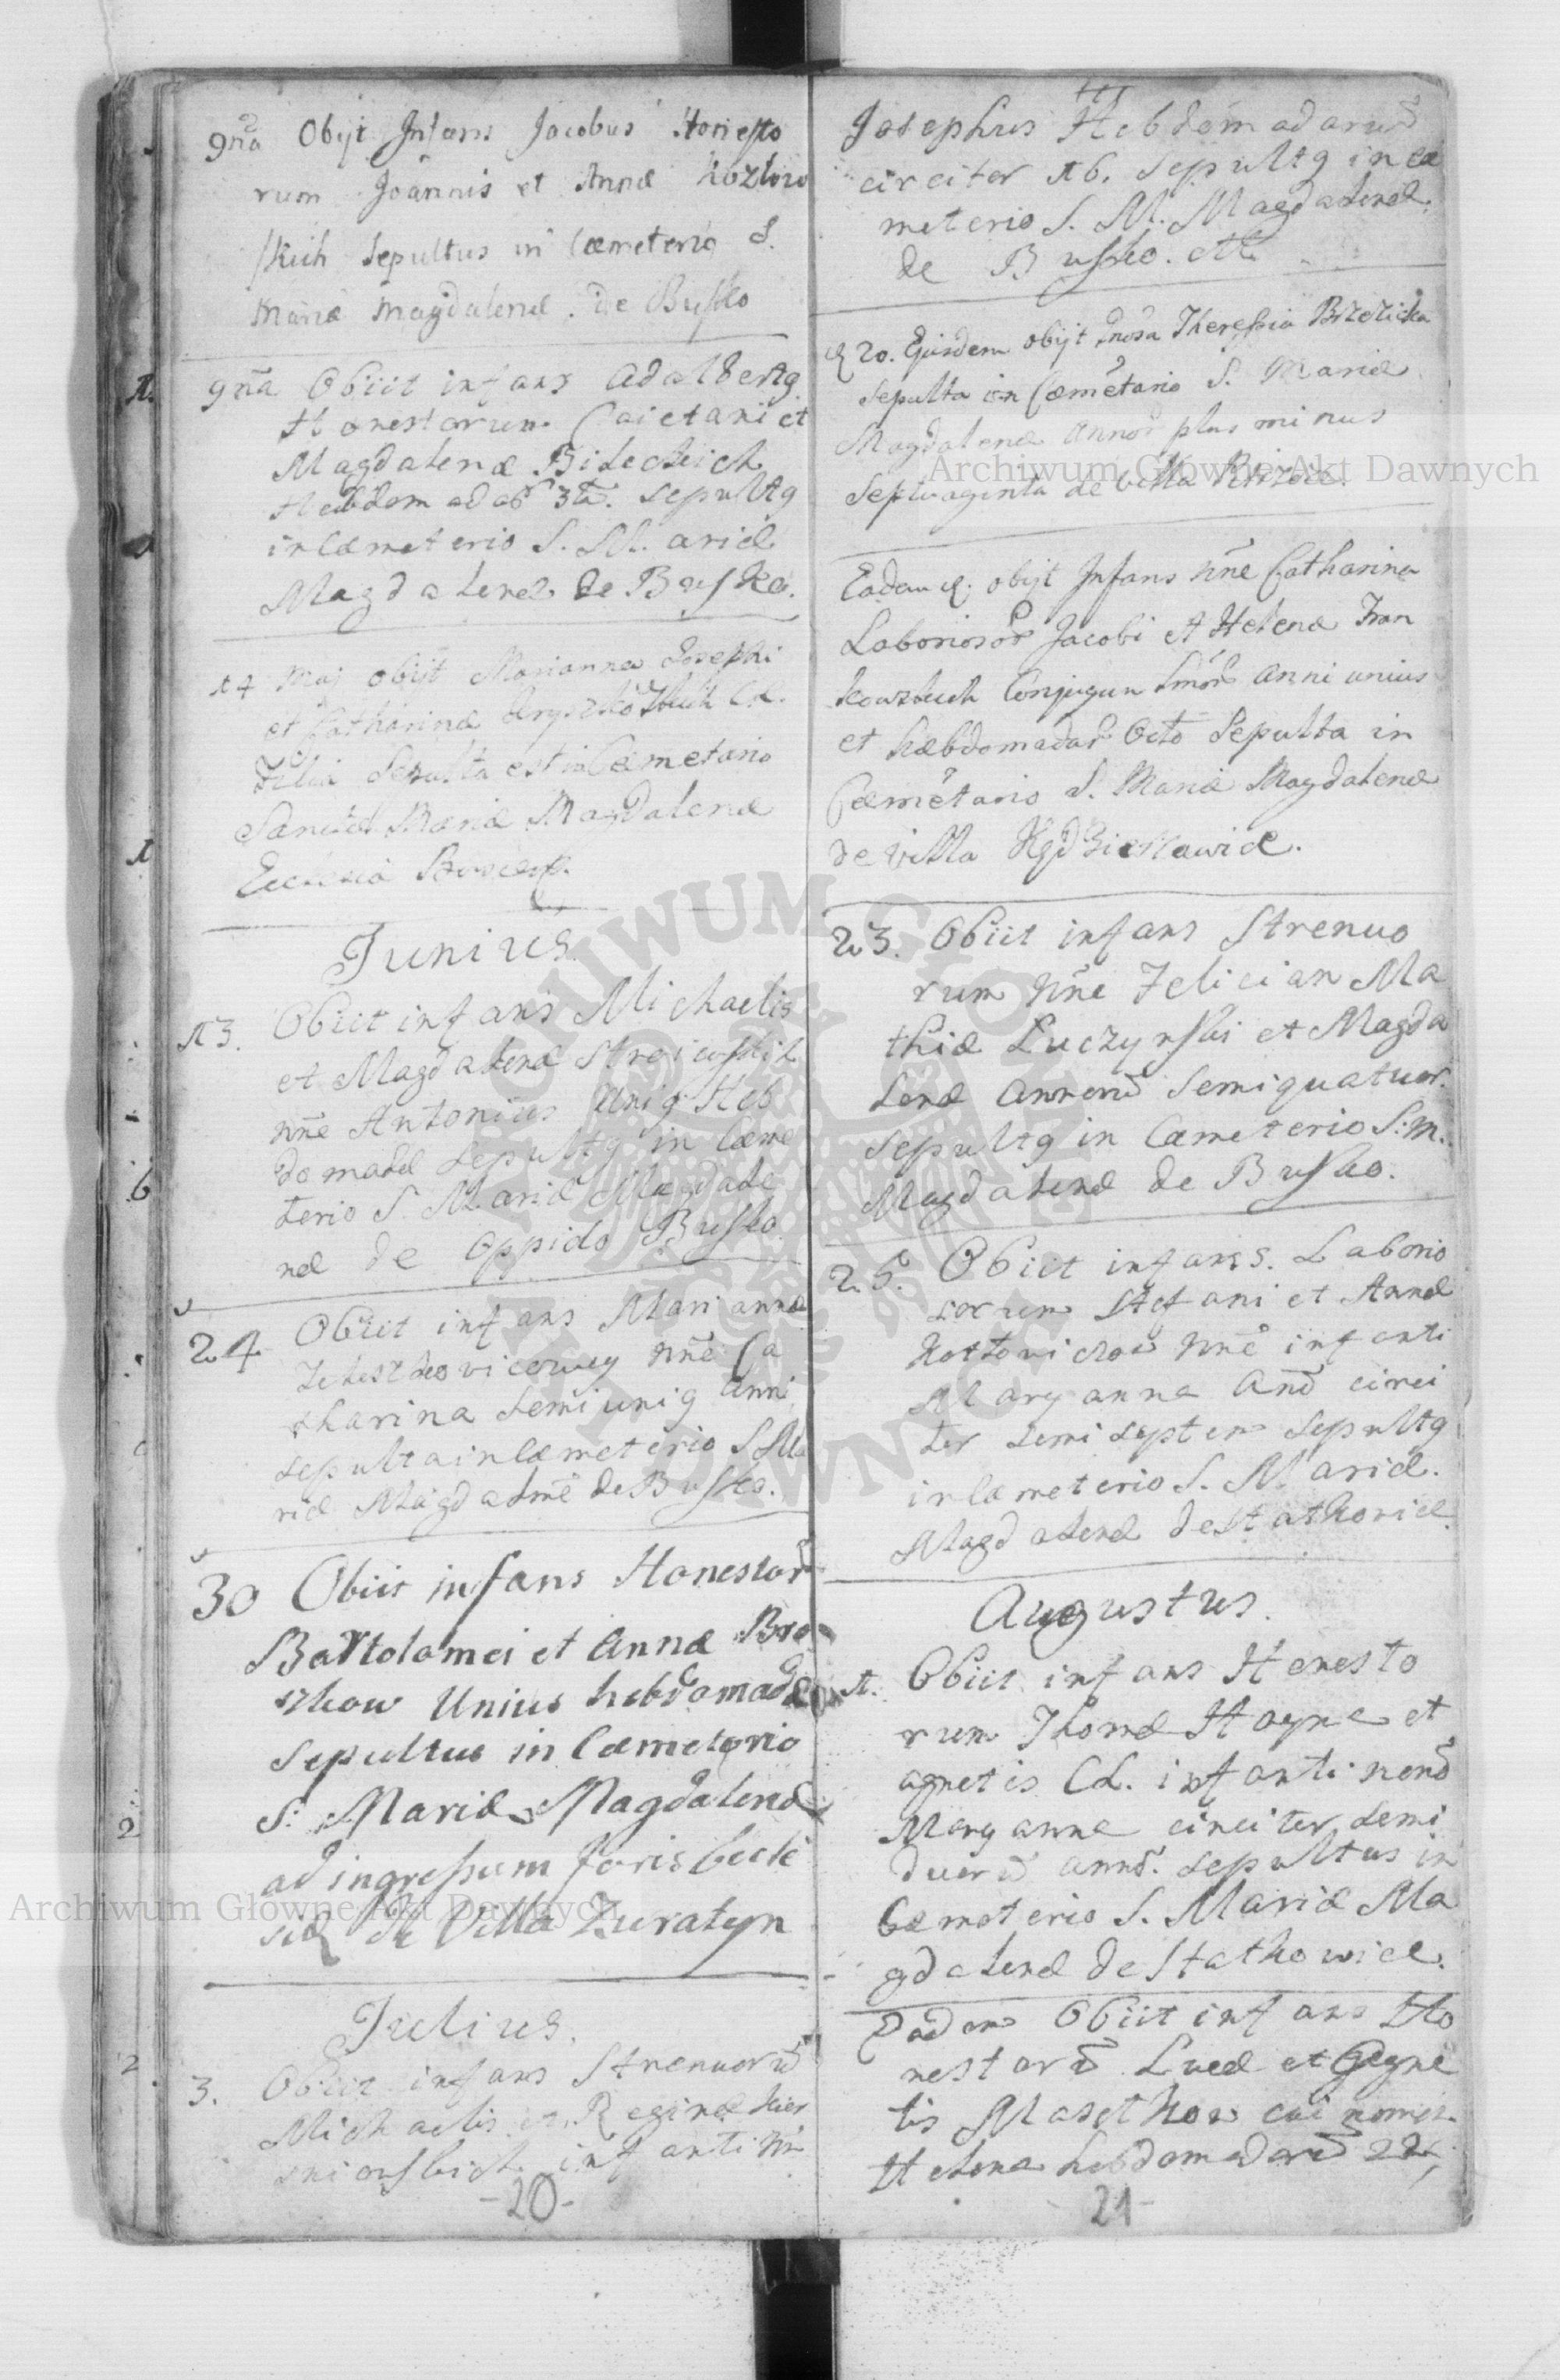 9na Obijt Infans Jacobus Honesto
rum Joannis et Annæ Kozłow
skich Sepultus in Cæmeterio S.
Mariæ Magdalenæ. de Busko
9na Obiit infans Adalbertg
Honestorum Caietani et
Magdalenæ Bileckich
Hebdomadar 3u. Sepultg
in Cæmeterio S. M. ariæ
Magdalenæ de Busko.
14 Maj obijt Marianna Josephi
et Catharinæ CL.
Filia Sepulta est in Cæmetario
Sanctæ Mariæ Magdalenæ
Ecclesia
Junius.
13. Obiit infans Michaelis
et Magdalenæ Stroicuskich
nne Antonius Unig Heb
domadæ Sepultg in Cæme
terio S. Mariæ Magdale
næ de Oppido Busko
24 Obiit infans Mariannæ
nne Ca
tharina Semi unig Anni
sepulta in Cæmeterio S Ma
riæ Magdalenæ de Busko.
30 Obiit infans Honestor
Bartolomei et Annæ Bro
szkow Unius hebdomadæ
Sepultus in Cæmeterio
S. Mariæ Magdalenæ
ad ingressum foris Eccle
siæ de Villa Zuratyn
Julius.
3. Obiit infans Strenuoru
Michaelis et Reginæ Kier
snioskich infanti
-20-
Josephus Hebdomadaru
circiter 16. Sepultg in Cæ
meterio S. M. Magdalenæ.
de Busko.
20. Ejusdem obijt Theressia Brzezicka
Sepulta in Cæmetario S. Mariæ
Magdalenæ Annor plus minus
Septuaginta de Villa
Eadem obijt Infans nne Catharina
Laboriosor Jacobi et Helenæ Fran
Conjugum Anni unius
et hæbdomadar Octo Sepulta in
Cæmetario S. Mariæ Magdalenæ
de Villa
23. Obiit infans Strenuo
rum nne Felician Ma
thiæ Luczynski et Magda
lenæ Annoru Semiquatuor.
Sepultg in Cæmeterio S: M.
Magdalenæ de Busko.
25. Obiit infans. Laborio
sorum Stefani et Annæ
nne infanti
Maryanna Ano circi
ter Semi septem Sepultg
in Cæmeterio S. Mariæ.
Magdalenæ de Statkoviæ.
Augustus.
1. Obiit infans Honesto
rum Thomæ et
agnetis CL. infanti
Maryanna circiter Semi
duoru anno. Sepultus in
Cæmeterio S. Mariæ Ma
gdalenæ de Statkowice.
Eadem Obiit infans Ho
nestoru Lucæ et Agne
tis cui nomen
Helena hebdomadaru 22,
21-
Archiwum Główne Akt Dawnych
Archiwum Główne Akt Dawnych
ARCHIWUM GŁÓWNE AKT DAWNYCH